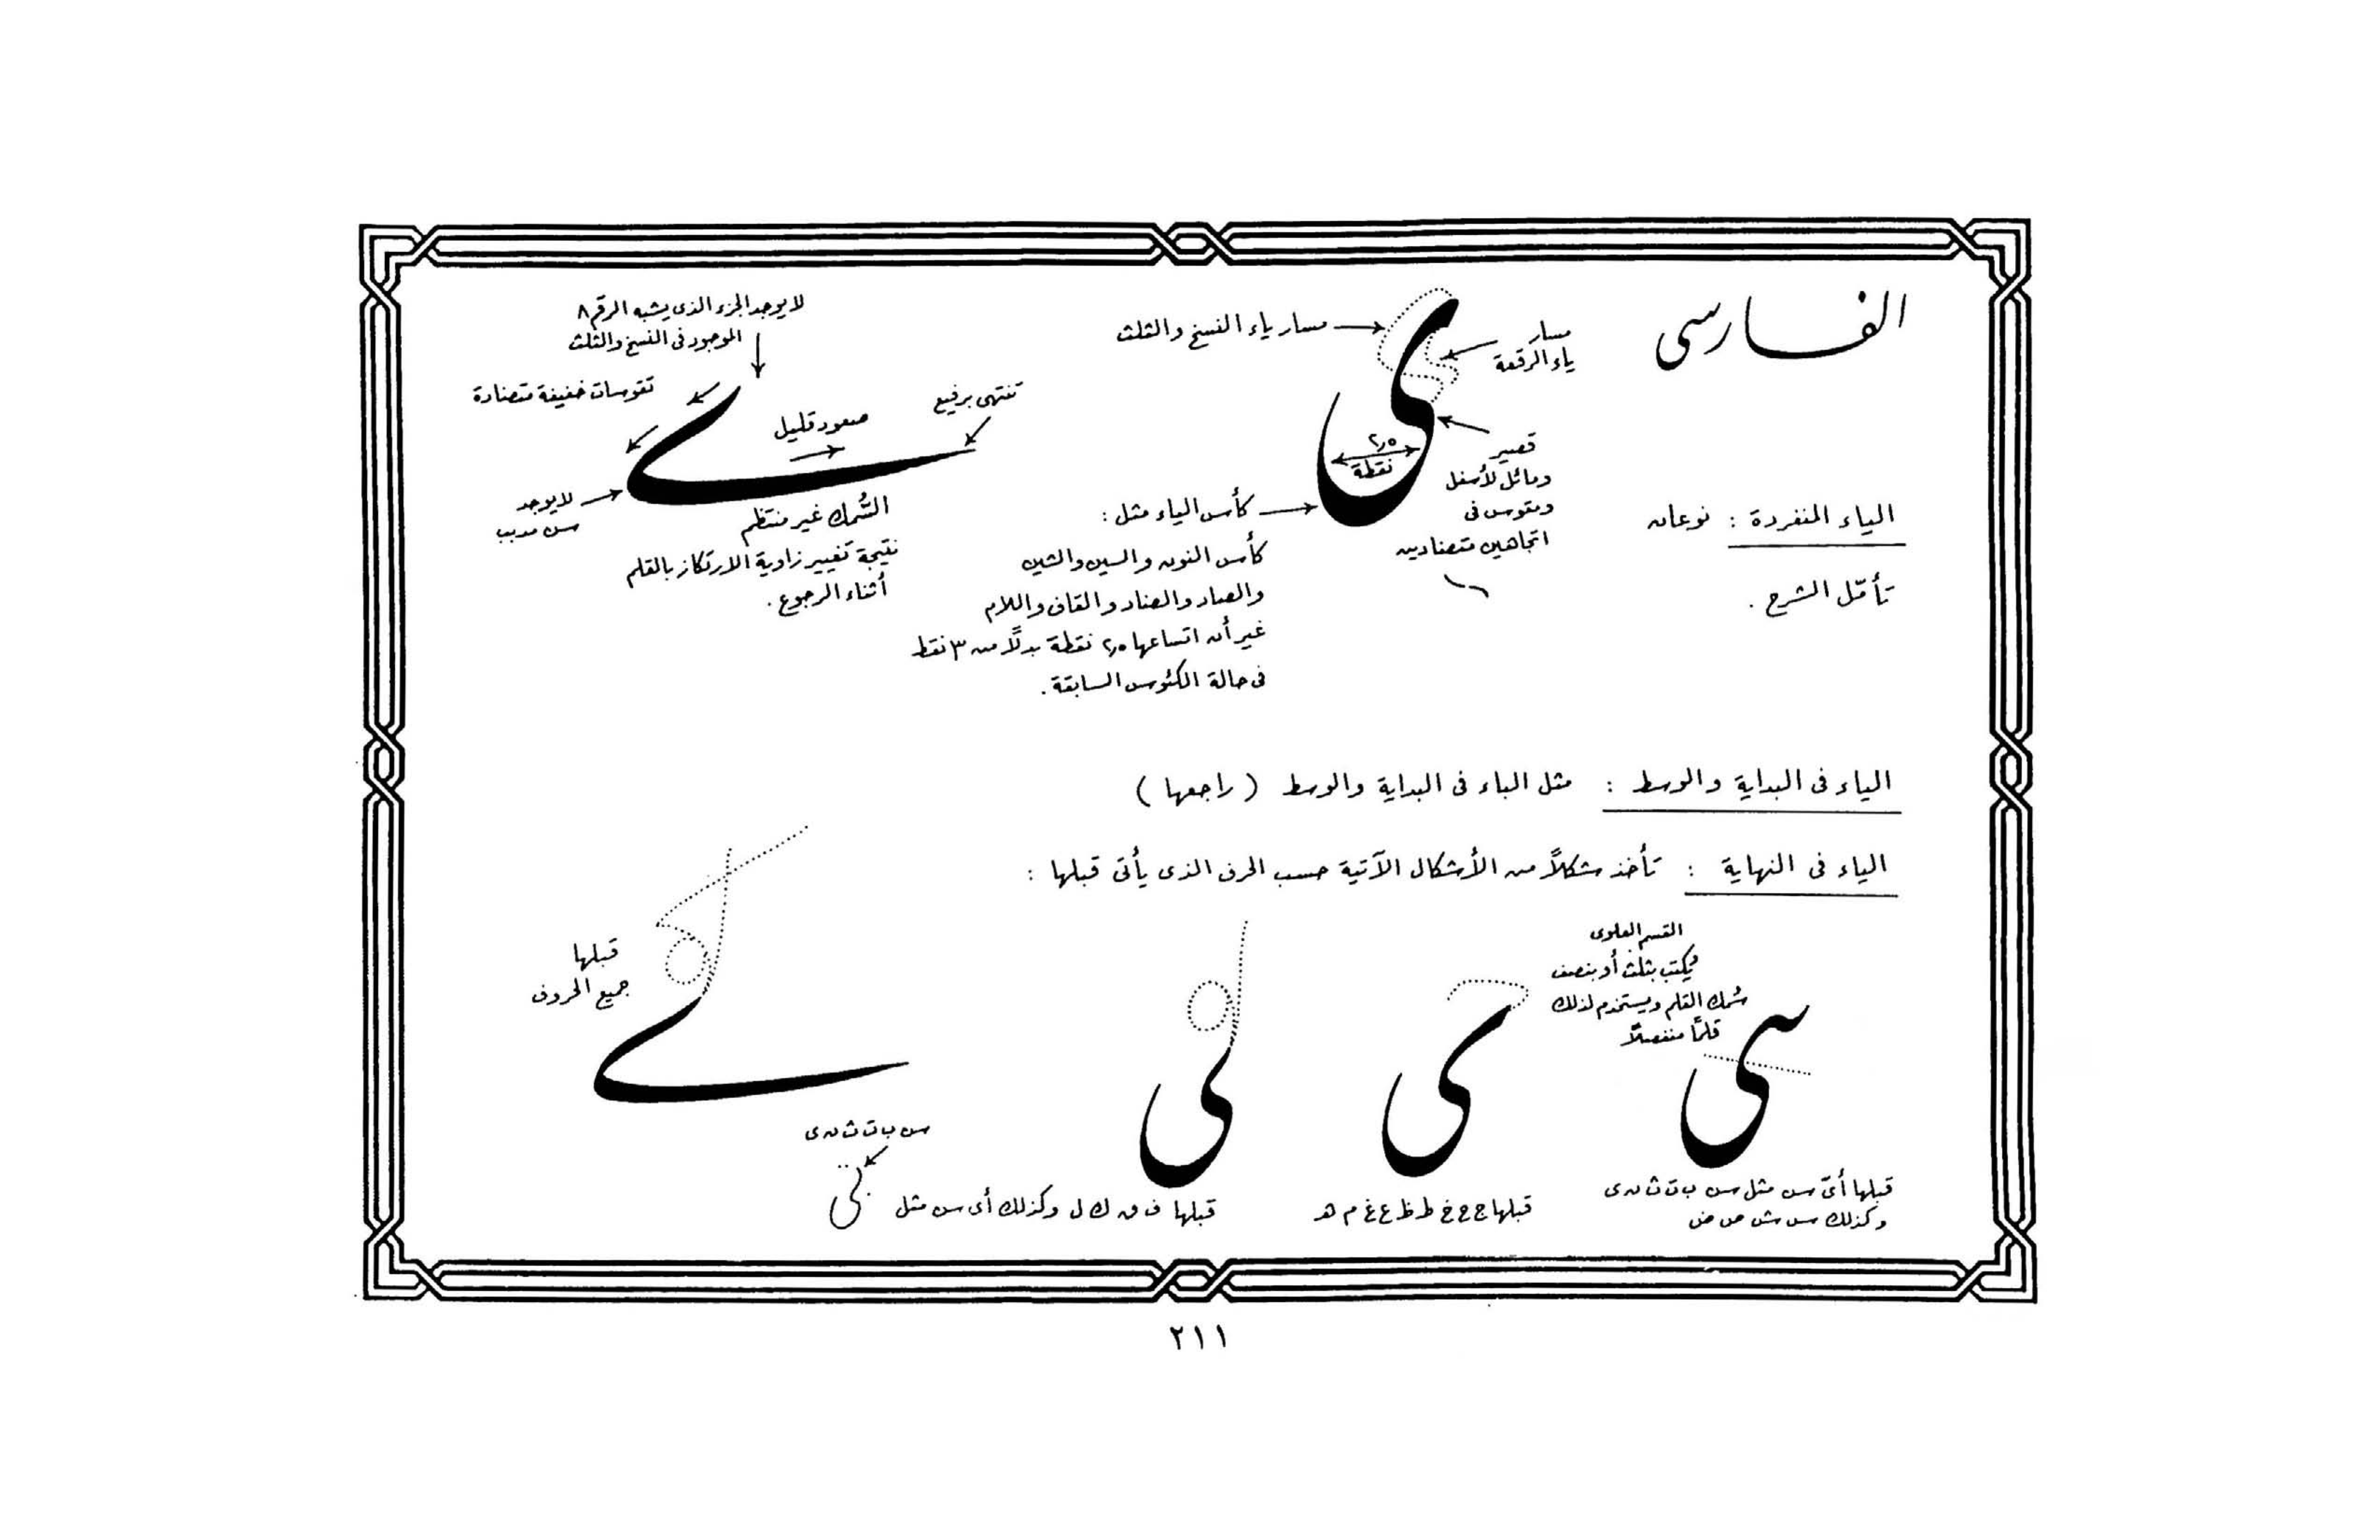 الفارسى
الياء المنفردة : نوعان
تأمّل الشرح .
مسار
ياء الرقعة
مسار ياء النسخ والثلث
قصير
ومائل لأسفل
ومقوس فى
اتجاهين متضادين
٢٫٥
نقطة
كأس الياء مثل :
كأس النون والسين والشين
والصاد والضاد والقاف واللام
غير أن اتساعها ٢٫٥ نقطة بدلاً من ٣ نقط
فى حالة الكئوس السابقة .
لا يوجد الجزء الذى يشبه الرقم ٨
الموجود فى النسخ والثلث
تقوسات خفيفة متضادة
تنتهى برفيع
صعود قليل
لا يوجد
سن مدبب
السُّمك غير منتظم
نتيجة تغيير زاوية الارتكاز بالقلم
أثناء الرجوع .
الياء فى البداية والوسط : مثل الباء فى البداية والوسط ( راجعها )
الياء فى النهاية : تأخذ شكلاً من الأشكال الآتية حسب الحرف الذى يأتى قبلها :
القسم العلوى
يُكتب بثلث أو بنصف
سُمك القلم ويستخدم لذلك
قلمًا منفصلاً
قبلها أىّ سن مثل سن ب ت ث ن ى
وكذلك س ش ص ض
قبلها ج ح خ ط ظ ع غ م هـ
قبلها ف ق ك ل وكذلك أى سن مثل
سن ب ت ث ن ى
قبلها
جميع الحروف
٢١١